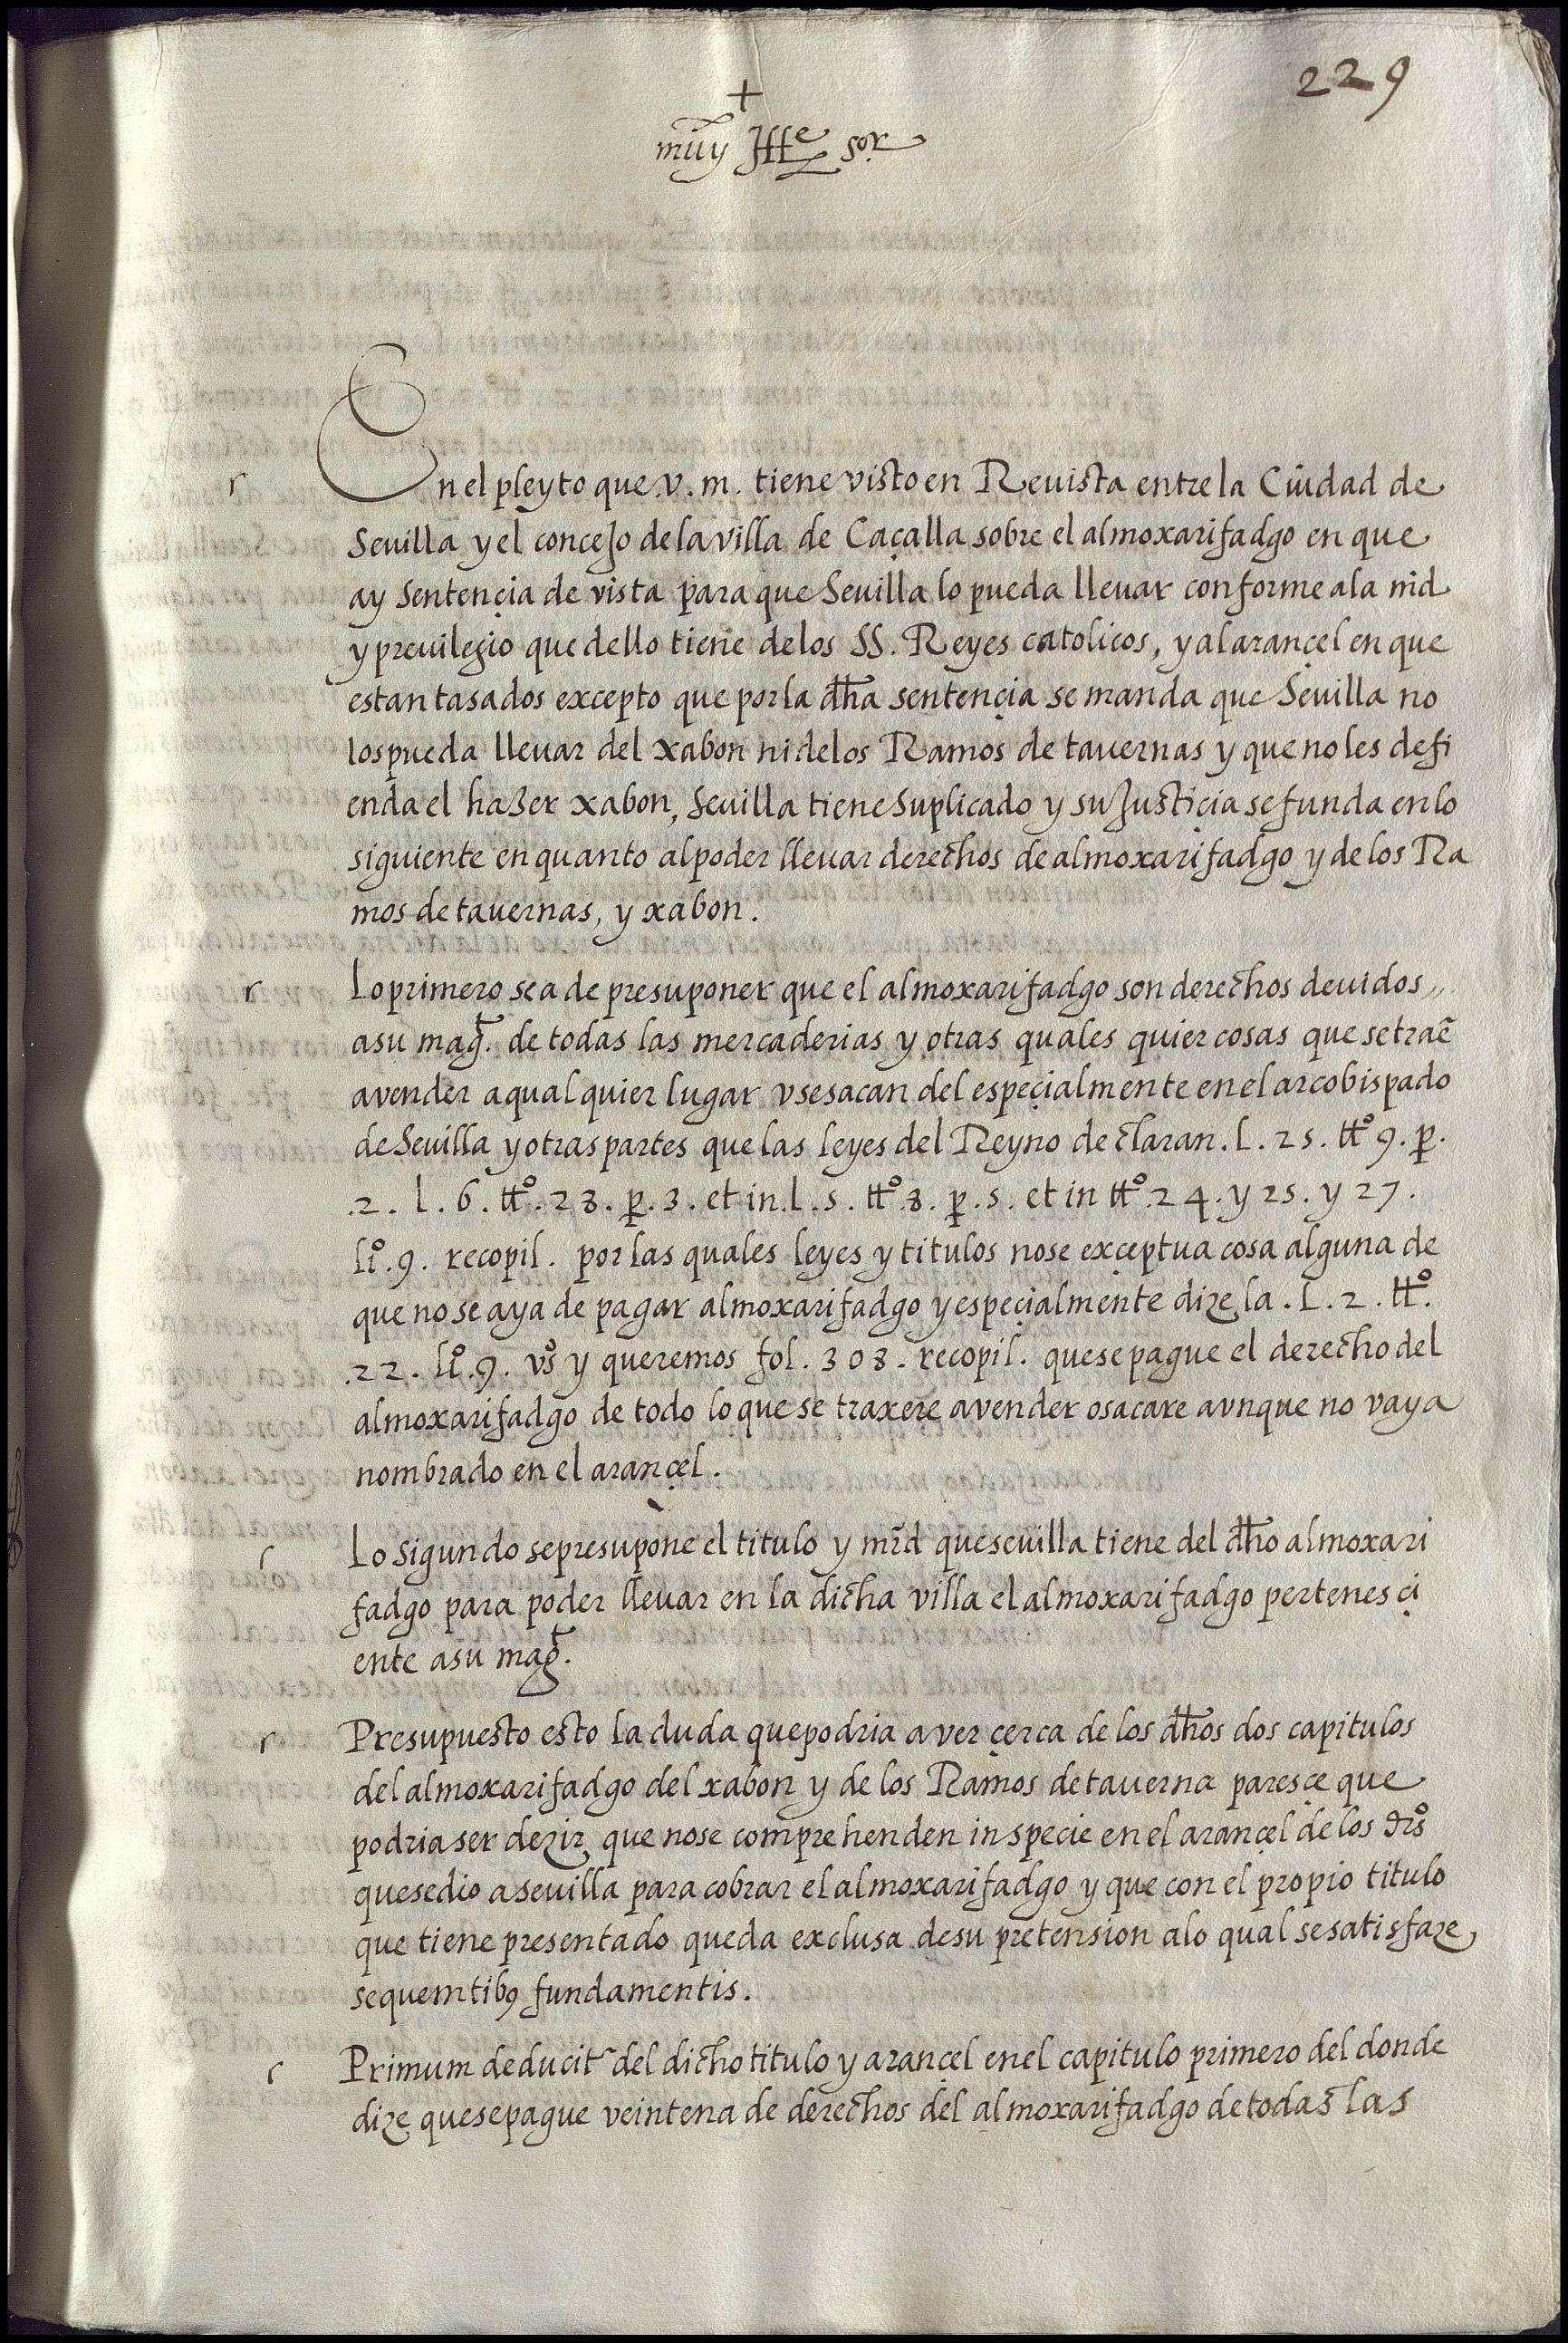 229
+
muy Ille sor
En el pleyto que v. m. tiene visto en Reuista entre la Ciudad de
Seuilla y el concejo de la villa de Caçalla sobre el almoxarifadgo en que
ay Sentençia de vista para que Seuilla lo pueda lleuar conforme a la md
y preuilegio que dello tiene de los SS. Reyes catolicos, y al arançel en que
estan tasados excepto que por la dha sentençia se manda que Seuilla no
los pueda lleuar del xabon ni de los Ramos de tauernas y que no les defi
enda el hazer xabon, Seuilla tiene Suplicado y su Justiçia se funda en lo
siguiente en quanto al poder lleuar derechos de almoxarifadgo y de los Ra
mos de tauernas, y xabon.
Lo primero se a de presuponer que el almoxarifadgo son derechos deuidos
a su magt. de todas las mercaderias y otras quales quier cosas que se traē
a vender a qual quier lugar v se sacan del espeçialmente en el arcobispado
de Seuilla y otras partes que las leyes del Reyno declaran. l. 25. tto 9. p.
.2. l. 6. tto. 28. p. 3. et in. l. 5. tto. 8. p. 5. et in tto. 24. y 25. y 27.
lio. 9. recopil. por las quales leyes y titulos no se exceptua cosa alguna de
que no se aya de pagar almoxarifadgo y espeçialmente dize la. l. 2. tto.
.22. lio. 9. vos y queremos fol. 308. recopil. que se pague el derecho del
almoxarifadgo de todo lo que se traxere a vender o sacare avnque no vaya
nombrado en el arançel.
Lo sigundo se presupone el titulo y mrd que seuilla tiene del dho almoxari
fadgo para poder lleuar en la dicha villa el almoxarifadgo pertenesçi
ente a su magt.
Presupuesto esto la duda que podria aver çerca de los dhos dos capitulos
del almoxarifadgo del xabon y de los Ramos de tauerna paresçe que
podria ser dezir que no se comprehenden in specie en el arançel de los dros
que se dio a seuilla para cobrar el almoxarifadgo y que con el propio titulo
que tiene presentado queda exclusa de su pretension a lo qual se satisfaze
sequemtib9 fundamentis.
Primum deducitr del dicho titulo y arançel en el capitulo primero del donde
dize que se pague veintena de derechos del almoxarifadgo de todas las